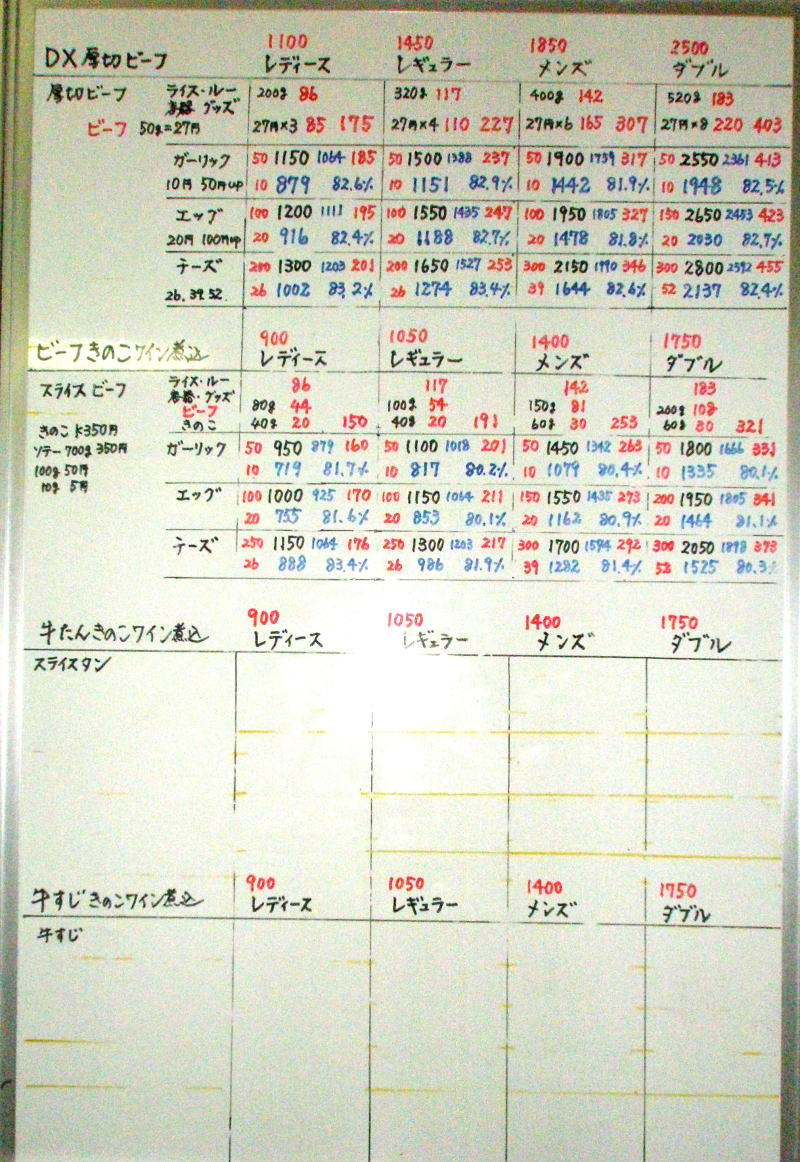 1100 1450 1850 2500
DX厚切ビーフ レディース レギュラー メンズ ダブル
厚切ビーフ ライス・ルー 200g 86 320g 117 400g 142 520g 183
グッズ
ビーフ 50g=27円 27円×3 85 175 27円×4 110 227 27円×6 165 307 27円×8 220 403
ガーリック 50 1150 1064 185 50 1500 1388 237 50 1900 1759 317 50 2550 2361 413
10円 50円up 10 879 82.6% 10 1151 82.9% 10 1442 81.9% 10 1948 82.5%
エッグ 100 1200 1111 195 100 1550 1435 247 100 1950 1805 327 150 2650 2453 423
20円 100円up 20 916 82.4% 20 1188 82.7% 20 1478 81.8% 20 2030 82.7%
チーズ 200 1300 1203 201 200 1650 1527 253 300 2150 1990 346 300 2800 2592 455
26.39.52. 26 1002 83.2% 26 1274 83.4% 39 1644 82.6% 52 2137 82.4%
900 1050 1400 1750
ビーフきのこワイン煮込 レディース レギュラー メンズ ダブル
スライスビーフ ライス・ルー 86 117 142 183
グッズ
ビーフ 80g 44 100g 54 150g 81 200g 108
きのこ K350円 きのこ 40g 20 150 40g 20 191 60g 30 253 60g 30 321
ソテー700g 350円 ガーリック 50 950 879 160 50 1100 1018 201 50 1450 1342 263 50 1800 1666 331
100g 50円 10 719 81.7% 10 817 80.2% 10 1079 80.4% 10 1335 80.1%
10g 5円 エッグ 100 1000 925 170 100 1150 1064 211 150 1550 1435 273 200 1950 1805 341
20 755 81.6% 20 853 80.1% 20 1162 80.9% 20 1464 81.1%
チーズ 250 1150 1064 176 250 1300 1203 217 300 1700 1574 292 300 2050 1898 373
26 888 83.4% 26 986 81.9% 39 1282 81.4% 52 1525 80.3%
900 1050 1400 1750
牛たんきのこワイン煮込 レディース レギュラー メンズ ダブル
スライスタン
900 1050 1400 1750
牛すじきのこワイン煮込 レディース レギュラー メンズ ダブル
牛すじ